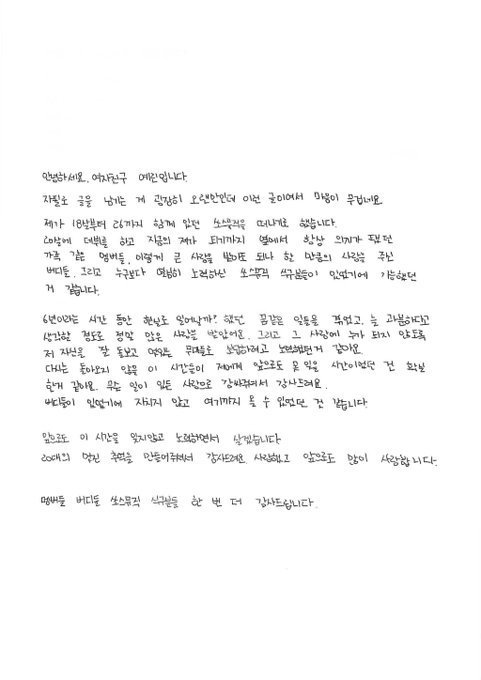 안녕하세요. 여자친구 예린입니다.
자필로 글을 남기는 게 굉장히 오랜만인데 이런 글이어서 마음이 무겁네요.
제가 18살부터 26까지 함께 있던 쏘스뮤직을 떠나기로 했습니다.
20살에 데뷔를 하고 지금의 제가 되기까지 옆에서 항상 의지가 돼 줬던
가족 같은 멤버들, 이렇게 큰 사랑을 받아도 되나 할 만큼의 사랑을 주신
버디들, 그리고 누구보다 열심히 노력하신 쏘스뮤직 식구분들이 있었기에 가능했던
거 같습니다.
6년이라는 시간 동안 현실로 일어날까? 했던 꿈같은 일들을 이루었고, 늘 과분하다고
생각할 정도로 정말 많은 사랑을 받았어요. 그리고 그 사랑에 누가 되지 않도록
저 자신을 잘 돌보고 멋있는 무대들로 보답하려고 노력했던거 같아요.
다시는 돌아오지 않을 이 시간들이 저에게 앞으로도 못 잊을 시간이었던 건 확실
한거 같아요. 무슨 일이 있든 사랑으로 감싸줘서 감사드려요.
버디들이 있었기에 지치지 않고 여기까지 올 수 있었던 건 같습니다.
앞으로도 이 시간을 잊지않고 노력하면서 살겠습니다
20대의 멋진 추억을 만들어주셔서 감사드려요. 사랑했고 앞으로도 많이 사랑합니다.
멤버들 버디들 쏘스뮤직 식구분들 한 번 더 감사드립니다.